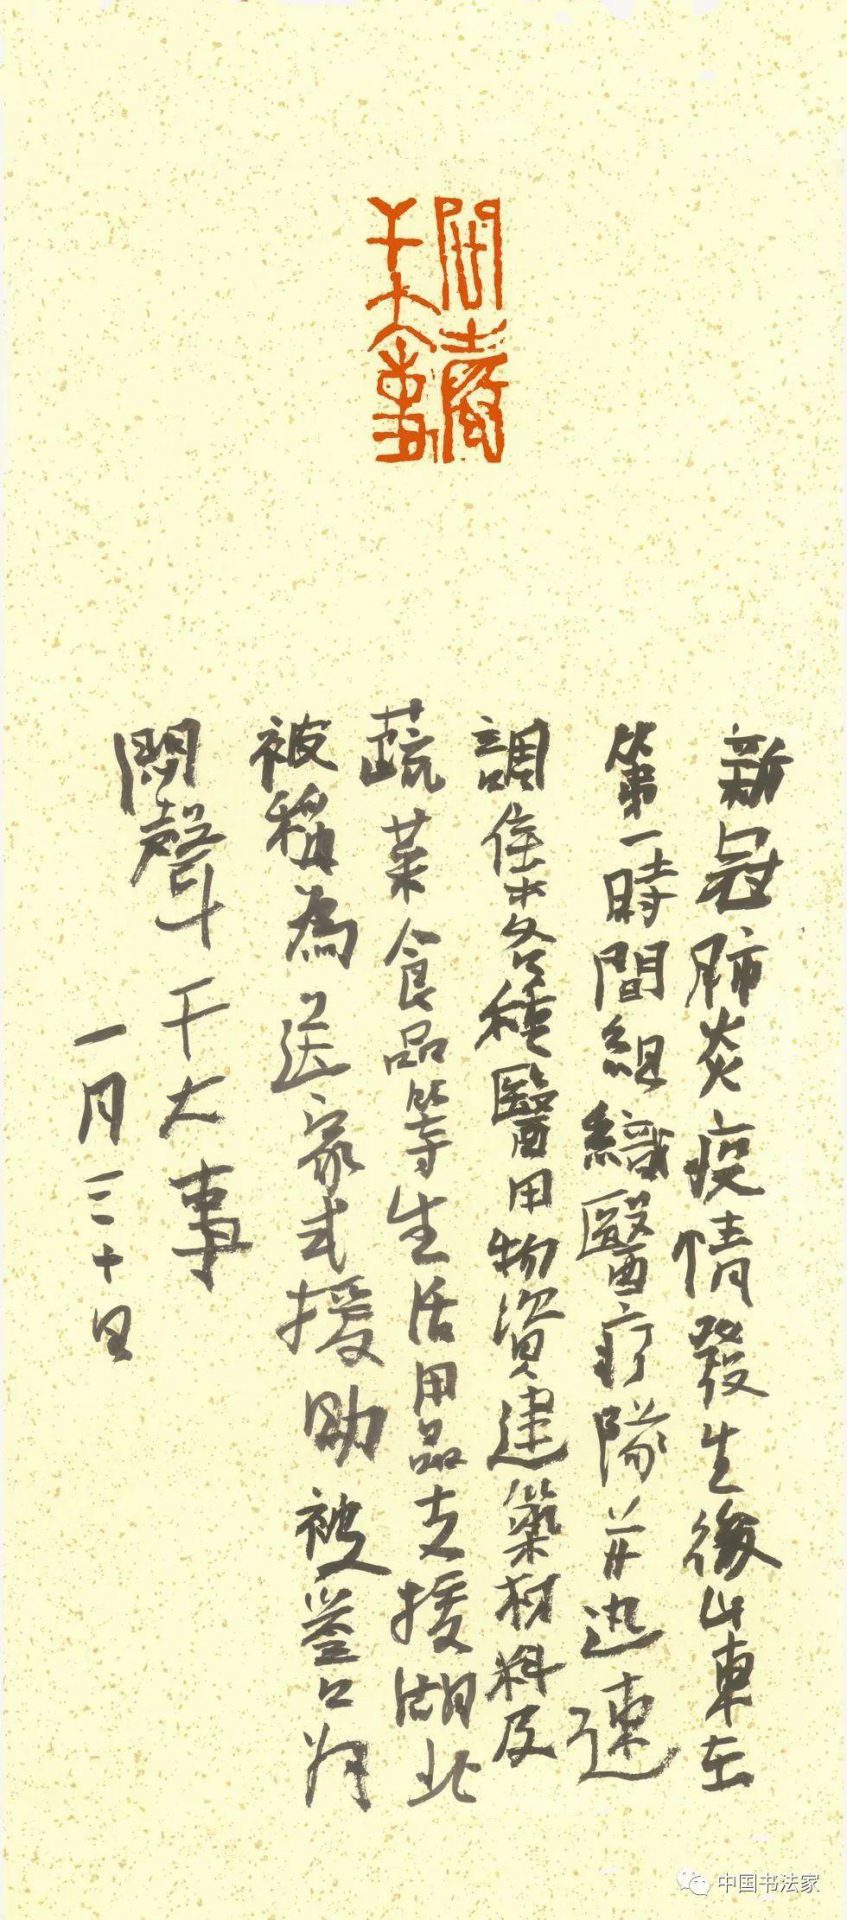 悶聲
干大事
新冠肺炎疫情發生後山東在
第一時間組織醫疗隊并迅速
調集各種醫用物資建築材料及
蔬菜食品等生活用品支援湖北
被稱為送家式援助被誉为
悶聲干大事
一月三十日
中国书法家